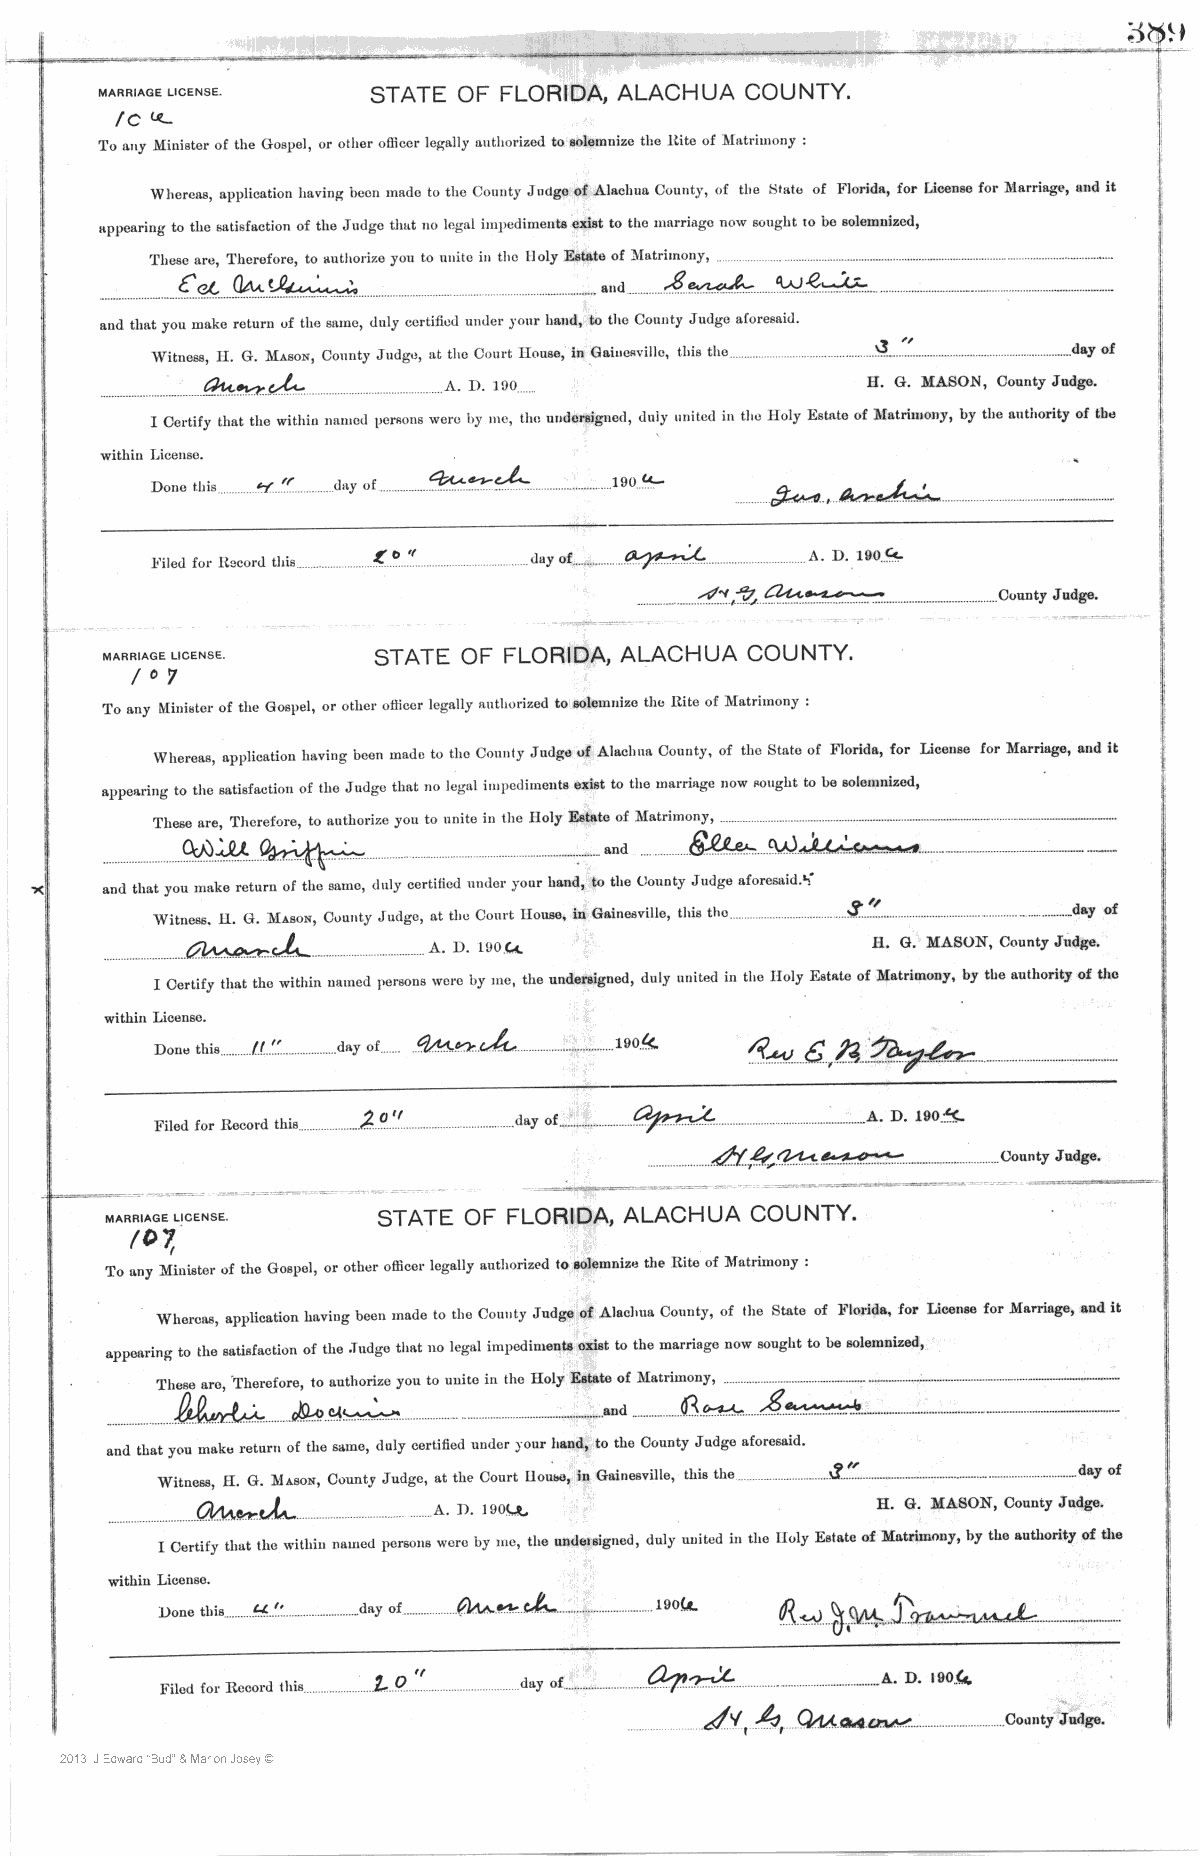 389
MARRIAGE LICENSE. STATE OF FLORIDA, ALACHUA COUNTY.
106
To any Minister of the Gospel, or other officer legally authorized to solemnize the Rite of Matrimony :
Whereas, application having been made to the County Judge of Alachua County, of the State of Florida, for License for Marriage, and it
appearing to the satisfaction of the Judge that no legal impediments exist to the marriage now sought to be solemnized,
These are, Therefore, to authorize you to unite in the Holy Estate of Matrimony,
Ed McGinnis and Sarah White
and that you make return of the same, duly certified under your hand, to the County Judge aforesaid.
Witness, H. G. MASON, County Judge, at the Court House, in Gainesville, this the 3" day of
March A. D. 190 H. G. MASON, County Judge.
I Certify that the within named persons were by me, the undersigned, duly united in the Holy Estate of Matrimony, by the authority of the
within License.
Done this 4" day of March 1906
Archie
Filed for Record this 20" day of April A. D. 1906
H. G. Mason County Judge.
MARRIAGE LICENSE. STATE OF FLORIDA, ALACHUA COUNTY.
107
To any Minister of the Gospel, or other officer legally authorized to solemnize the Rite of Matrimony :
Whereas, application having been made to the County Judge of Alachua County, of the State of Florida, for License for Marriage, and it
appearing to the satisfaction of the Judge that no legal impediments exist to the marriage now sought to be solemnized,
These are, Therefore, to authorize you to unite in the Holy Estate of Matrimony,
Will Griffin and Ella Williams
x and that you make return of the same, duly certified under your hand, to the County Judge aforesaid.
Witness, H. G. MASON, County Judge, at the Court House, in Gainesville, this the 3" day of
March A. D. 1906 H. G. MASON, County Judge.
I Certify that the within named persons were by me, the undersigned, duly united in the Holy Estate of Matrimony, by the authority of the
within License.
Done this 11" day of March 1906 Rev E. B. Taylor
Filed for Record this 20" day of April A. D. 1906
H. G. Mason County Judge.
MARRIAGE LICENSE. STATE OF FLORIDA, ALACHUA COUNTY.
107,
To any Minister of the Gospel, or other officer legally authorized to solemnize the Rite of Matrimony :
Whereas, application having been made to the County Judge of Alachua County, of the State of Florida, for License for Marriage, and it
appearing to the satisfaction of the Judge that no legal impediments exist to the marriage now sought to be solemnized,
These are, Therefore, to authorize you to unite in the Holy Estate of Matrimony,
Charlie Dockins and Rose Samuels
and that you make return of the same, duly certified under your hand, to the County Judge aforesaid.
Witness, H. G. MASON, County Judge, at the Court House, in Gainesville, this the 3" day of
March A. D. 1906 H. G. MASON, County Judge.
I Certify that the within named persons were by me, the undersigned, duly united in the Holy Estate of Matrimony, by the authority of the
within License.
Done this 4" day of March 1906 Rev J. M. Trammel
Filed for Record this 20" day of April A. D. 1906
H. G. Mason County Judge.
2013 J Edward "Bud" & Marion Josey ©